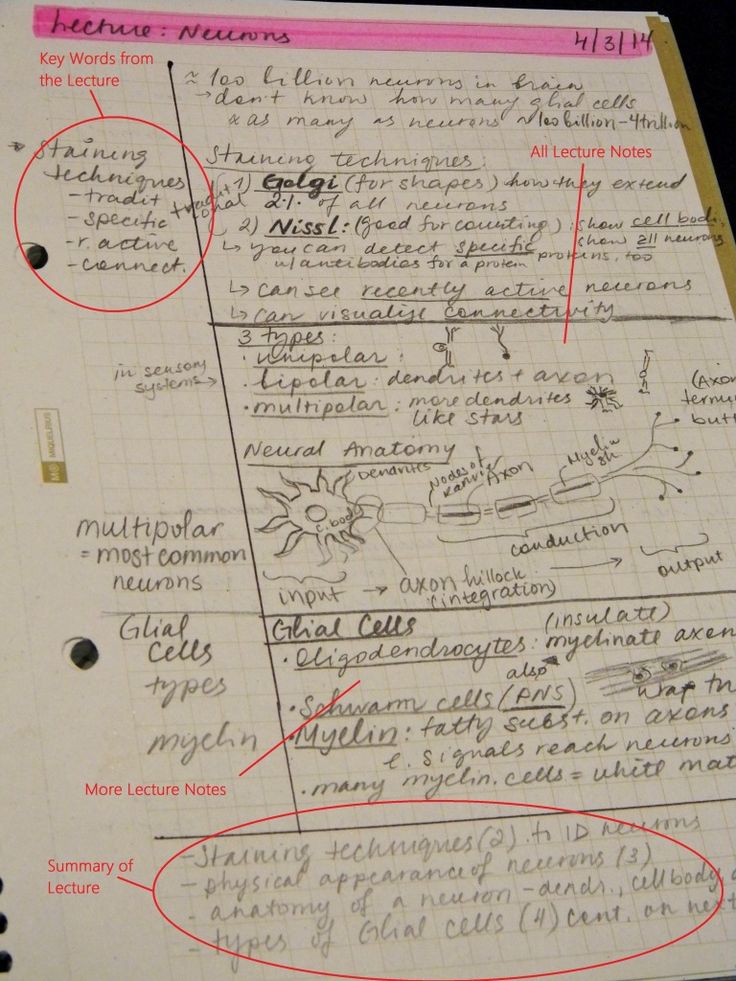 Lecture: Neurons 4/3/14
Key Words from
the Lecture
≈ 100 billion neurons in brain
→ don't know how many glial cells
as many as neurons ~ 100 billion - 4 trillion
→ Staining
techniques
- tradit
- specific
- r. active
- connect.
All Lecture Notes
Staining techniques:
traditional
1) Golgi (for shapes) how they extend
2% of all neurons
2) Nissl: (good for counting): show cell bodi
show all neurons
↳ you can detect specific proteins, too
w/antibodies for a protein
↳ can see recently active neurons
↳ can visualize connectivity
3 types:
· unipolar:
in sensory
systems →
· bipolar: dendrites + axon
· multipolar: more dendrites
like stars
(Axon
butt
Neural Anatomy
Dendrites
Nodes of
Ranvier
Axon
Myelin
sh.
c. body
conduction
multipolar
= most common
neurons
input → axon hillock → output
(integration)
Glial
Cells
types
myelin
Glial Cells
(insulate)
· Oligodendrocytes: myelinate axon
also
· Schwann cells (PNS)
wrap
· Myelin: fatty subst. on axons
signals reach neurons
· many myelin. cells = white mat
More Lecture Notes
Summary of
Lecture
- Staining techniques (2) to ID neurons
- physical appearance of neurons (3)
- anatomy of a neuron - dendr., cell body
- types of Glial cells (4) cont. on next
MIQUELRIUS